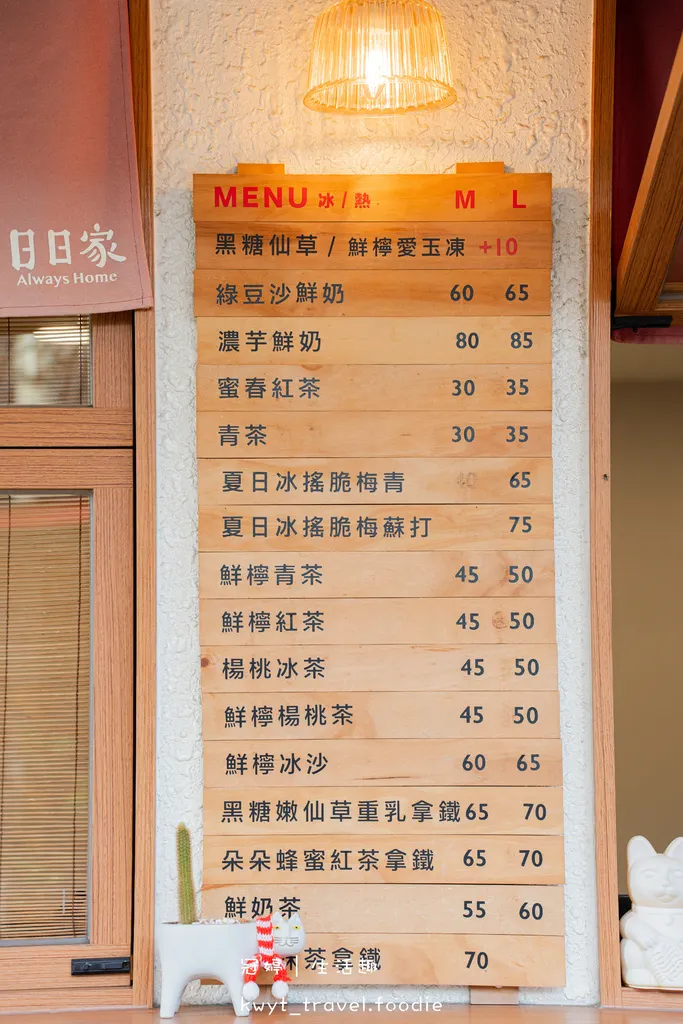 日日家
Always Home
MENU 冰/熱 M L
黑糖仙草/鮮檸愛玉凍 +10
綠豆沙鮮奶 60 65
濃芋鮮奶 80 85
蜜春紅茶 30 35
青茶 30 35
夏日冰搖脆梅青 65
夏日冰搖脆梅蘇打 75
鮮檸青茶 45 50
鮮檸紅茶 45 50
楊桃冰茶 45 50
鮮檸楊桃茶 45 50
鮮檸冰沙 60 65
黑糖嫩仙草重乳拿鐵 65 70
朵朵蜂蜜紅茶拿鐵 65 70
鮮奶茶 55 60
茶拿鐵 70
冠婷|生活趣
kwyt_travel.foodie